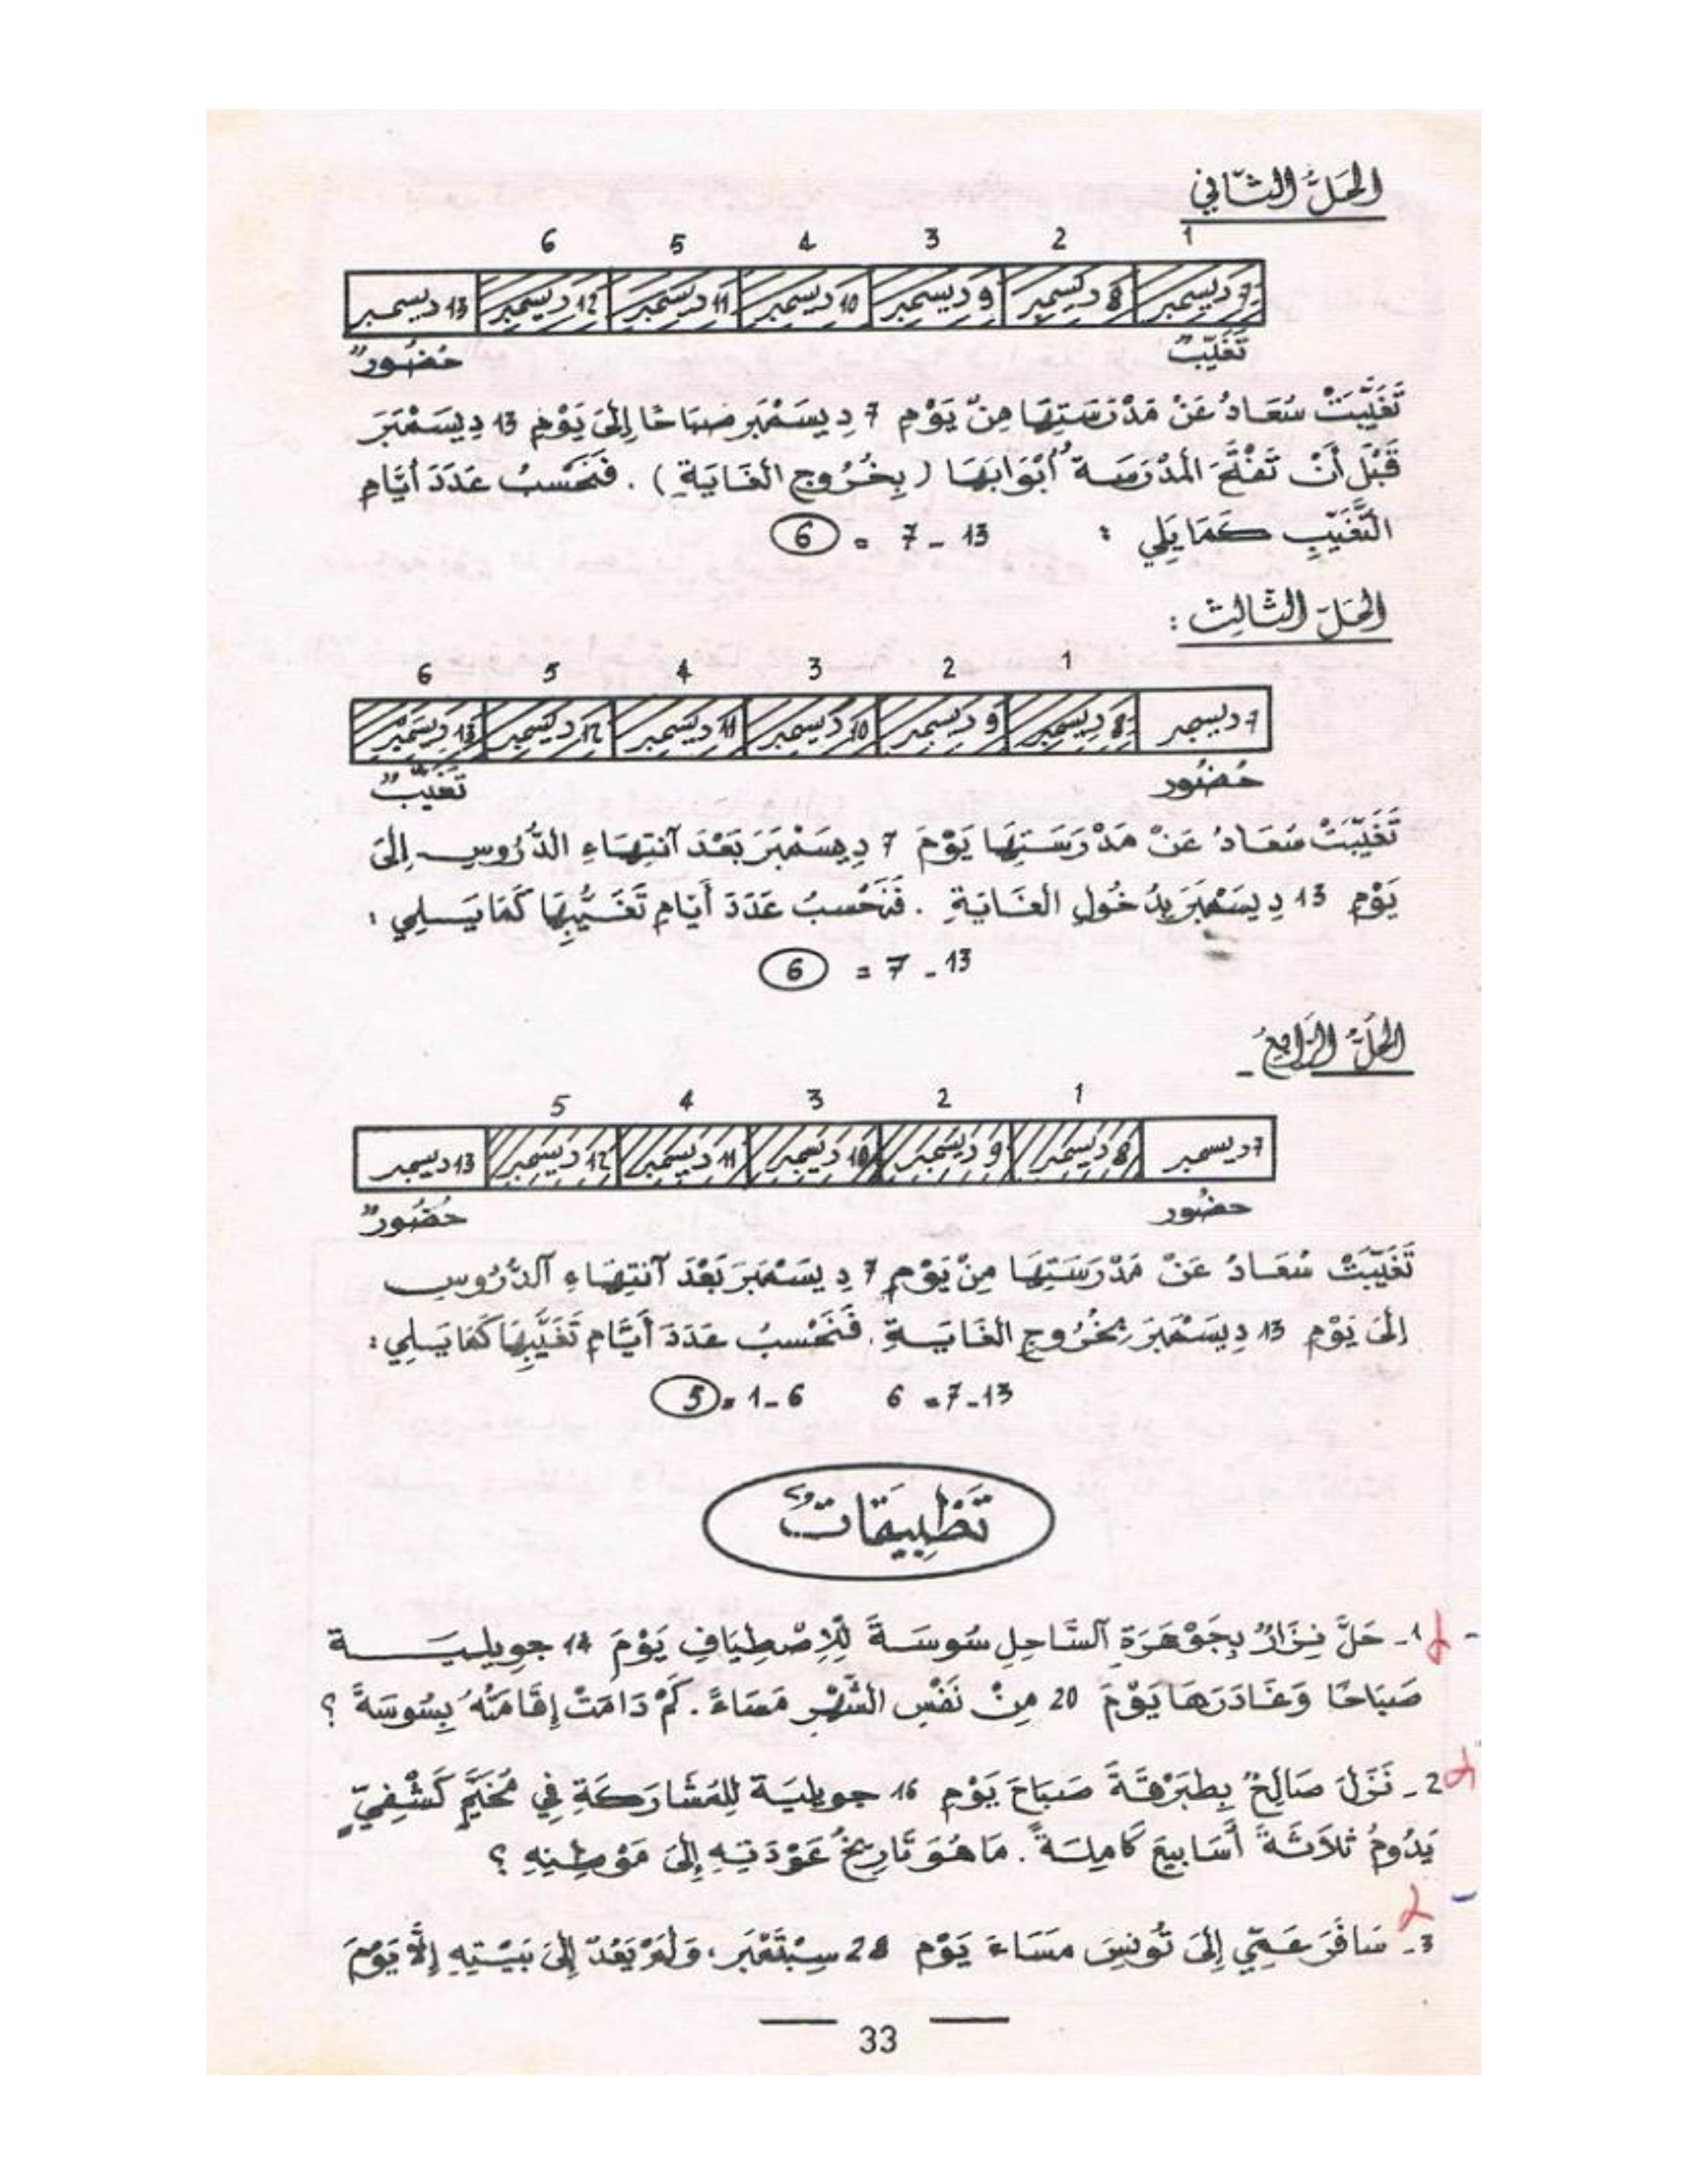 الحَلُّ الثَّانِي
1 2 3 4 5 6
7 ديسمبر 8 ديسمبر 9 ديسمبر 10 ديسمبر 11 ديسمبر 12 ديسمبر 13 ديسمبر
تَغَيُّبٌ حُضُورٌ
تَغَيَّبَتْ سُعَادُ عَنْ مَدْرَسَتِهَا مِنْ يَوْمِ 7 دِيسَمْبَر صَبَاحًا إِلَى يَوْمِ 13 دِيسَمْبَرَ
قَبْلَ أَنْ تَفْتَحَ الْمَدْرَسَةُ أَبْوَابَهَا (بِخُرُوجِ الغَايَةِ). فَنَحْسبُ عَدَدَ أَيَّامِ
التَّغَيُّبِ كَمَا يَلِي : 13 - 7 = 6
الحَلّ الثَّالِث :
1 2 3 4 5 6
7 ديسمبر 8 ديسمبر 9 ديسمبر 10 ديسمبر 11 ديسمبر 12 ديسمبر 13 ديسمبر
حُضُور تَغَيُّبٌ
تَغَيَّبَتْ سُعَادُ عَنْ مَدْرَسَتِهَا يَوْمَ 7 دِيسَمْبَرَ بَعْدَ آنتِهَاءِ الدُّرُوسِ إِلَى
يَوْمِ 13 دِيسَمْبَرَ بِدُخُولِ الغَايَةِ . فَنَحْسبُ عَدَدَ أَيَّامِ تَغَيُّبِهَا كَمَا يَلِي :
13 - 7 = 6
الحَلُّ الرَّابِعُ -
1 2 3 4 5
7 ديسمبر 8 ديسمبر 9 ديسمبر 10 ديسمبر 11 ديسمبر 12 ديسمبر 13 ديسمبر
حضُور حُضُورٌ
تَغَيَّبَتْ سُعَادُ عَنْ مَدْرَسَتِهَا مِنْ يَوْمِ 7 دِيسَمْبَرَ بَعْدَ آنتِهَاءِ آلدُّرُوسِ
إِلَى يَوْمِ 13 دِيسَمْبَرَ بِخُرُوجِ الغَايَةِ . فَنَحْسبُ عَدَدَ أَيَّامِ تَغَيُّبِهَا كَمَا يَلِي :
13 - 7 = 6 6 - 1 = 5
تَطْبِيقَاتٌ
1 - حَلَّ نِزَارُ بِجَوْهَرَةِ آلسَّاحِلِ سُوسَةَ لِلْاِصْطِيَافِ يَوْمَ 14 جويلية
صَبَاحًا وَغَادَرَهَا يَوْمَ 20 مِنْ نَفْسِ الشَّهْرِ مَسَاءً . كَمْ دَامَتْ إِقَامَتُهُ بِسُوسَةَ ؟
2 - نَزَلَ صَالِحٌ بِطَبَرْقَةَ صَبَاحَ يَوْمِ 16 جويلية لِلْمُشَارَكَةِ فِي مُخَيَّمٍ كَشْفِيٍّ
يَدُومُ ثَلَاثَةَ أَسَابِيعَ كَامِلَةً . مَا هُوَ تَارِيخُ عَوْدَتِهِ إِلَى مَوْطِنِهِ ؟
3 - سَافَرَ عَمِّي إِلَى تُونِسَ مَسَاءَ يَوْمِ 28 سِبْتَمْبَر، وَلَمْ يَعُدْ إِلَى بَيْتِهِ إِلَّا يَوْمَ
33